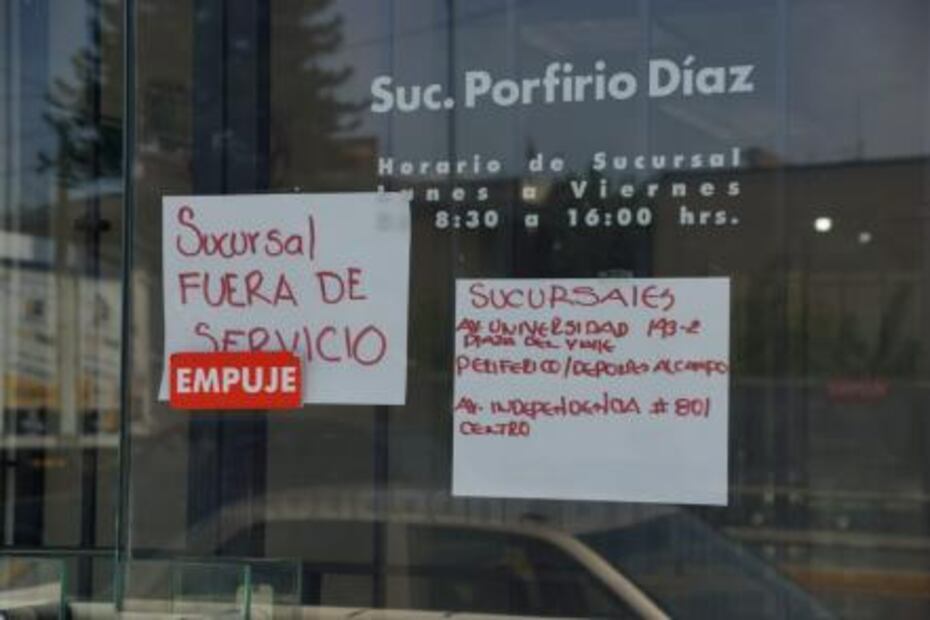 Suc. Porfirio Díaz
Horario de Sucursal
Lunes a Viernes
8:30 a 16:00 hrs.
Sucursal
FUERA DE
SERVICIO
EMPUJE
SUCURSALES
AV. UNIVERSIDAD 193-2
PLAZA DEL VALLE
PERIFERICO/DEPORTES
AV. INDEPENDENCIA # 801
CENTRO